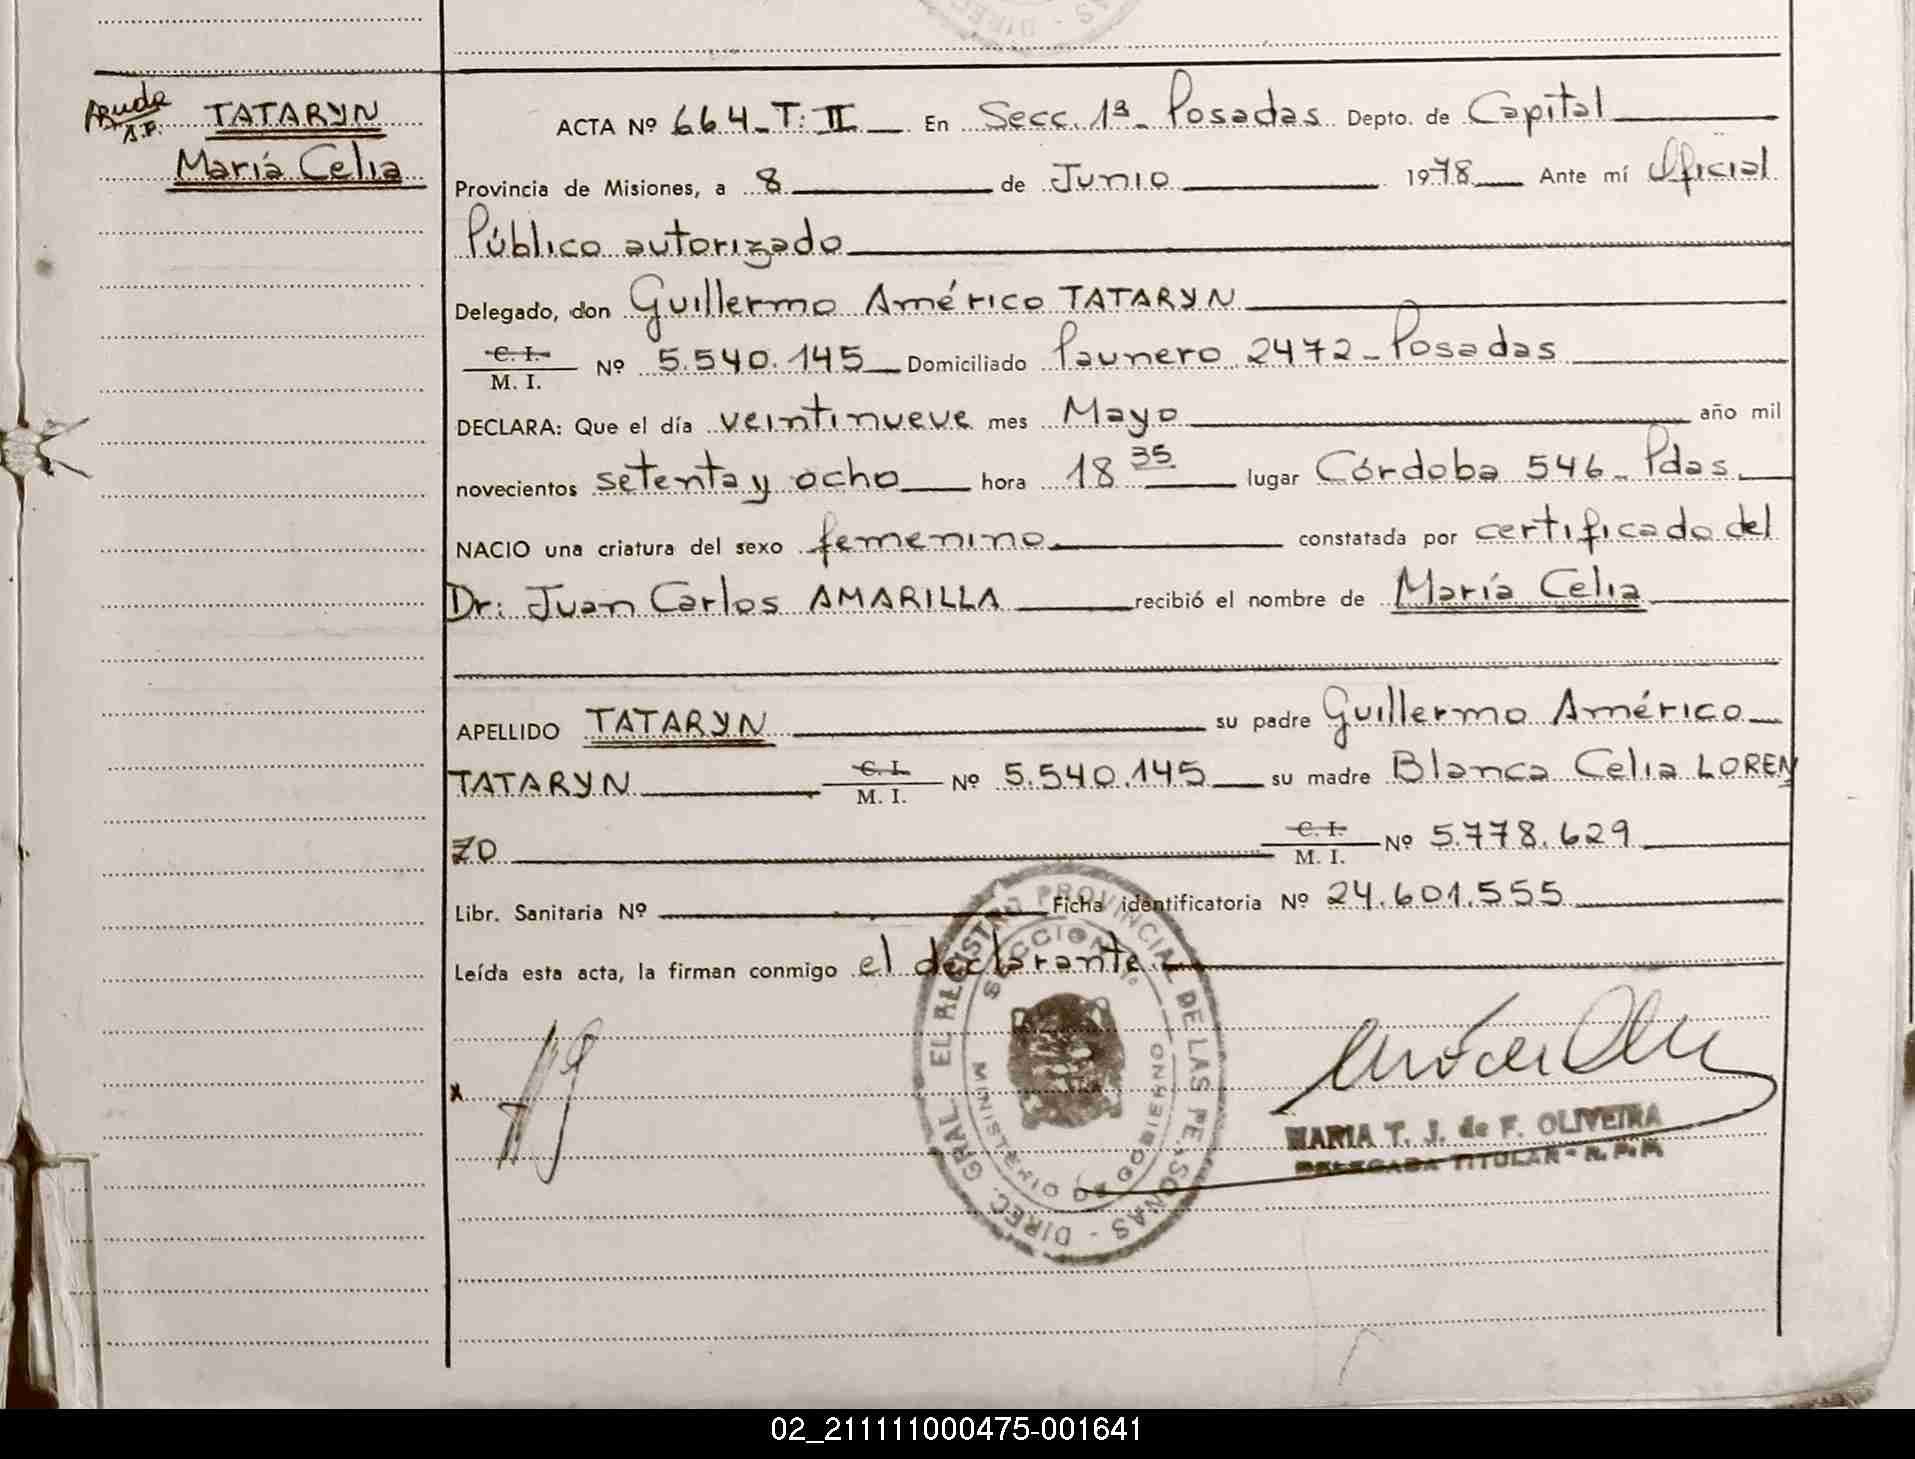 Aruda TATARYN
María Celia
ACTA Nº 664-T: II En Secc. 1ª- Posadas Depto. de Capital
Provincia de Misiones, a 8 de Junio 1978 Ante mí Oficial
Público autorizado
Delegado, don Guillermo Américo TATARYN
C. I.
M. I. Nº 5.540.145 Domiciliado Paunero 2472-Posadas
DECLARA: Que el día veintinueve mes Mayo año mil
novecientos setenta y ocho hora 18 35 lugar Córdoba 546- Pdas.
NACIO una criatura del sexo femenino constatada por certificado del
Dr: Juan Carlos AMARILLA recibió el nombre de María Celia
APELLIDO TATARYN su padre Guillermo Américo
TATARYN C. I. M. I. Nº 5.540.145 su madre Blanca Celia LOREN
ZO C. I. M. I. Nº 5.778.629
Libr. Sanitaria Nº Ficha identificatoria Nº 24.601.555
Leída esta acta, la firman conmigo el declarante.
DIREC. GRAL. EL REGISTRO PROVINCIAL DE LAS PERSONAS
SECCION 1ª
MINISTERIO DE GOBIERNO
x
MARIA T. J. de F. OLIVEIRA
DELEGADA TITULAR - R. P. P.
02_211111000475-001641